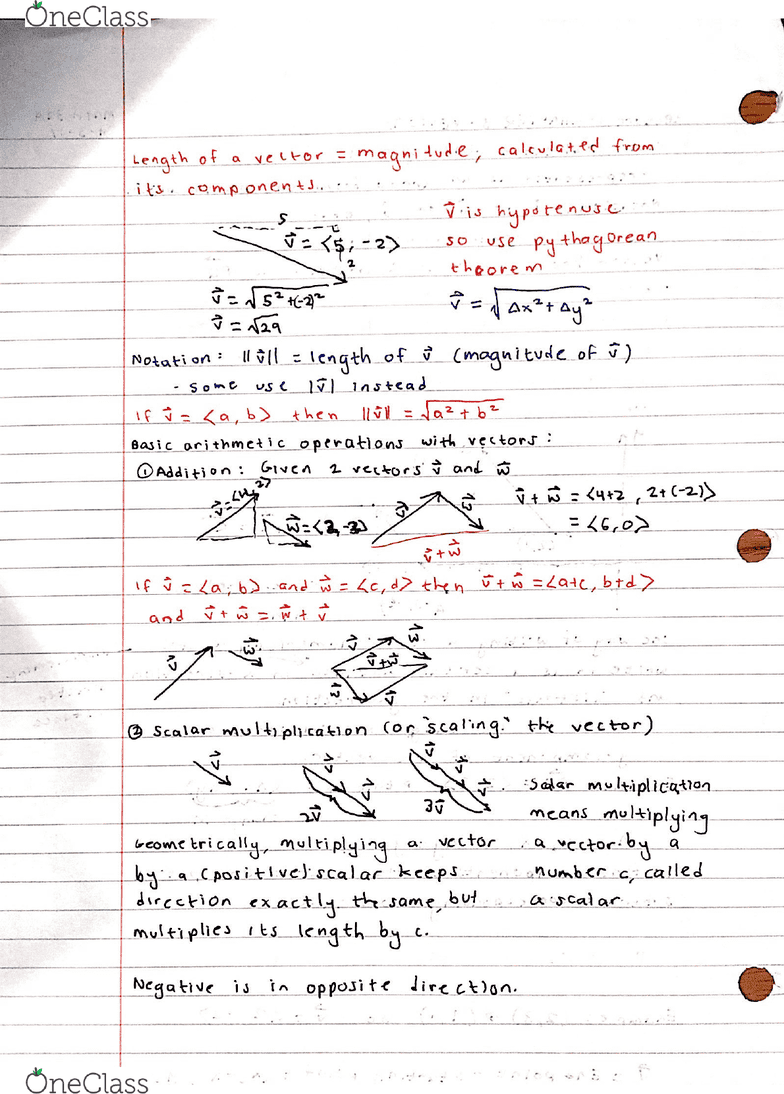 OneClass
Length of a vector = magnitude, calculated from
its components.
5
v⃗ = <5, -2>
2
v⃗ is hypotenuse
so use pythagorean
theorem
v⃗ = √5²+(-2)²
v⃗ = √29
v⃗ = √Δx²+Δy²
Notation: ||v⃗|| = length of v⃗ (magnitude of v⃗)
- some use |v⃗| instead
If v⃗ = <a, b> then ||v⃗|| = √a²+b²
Basic arithmetic operations with vectors:
① Addition: Given 2 vectors v⃗ and w⃗
v⃗ = <4, 2>
w⃗ = <2, -2>
v⃗
w⃗
v⃗+w⃗
v⃗+w⃗ = <4+2, 2+(-2)>
= <6,0>
If v⃗ = <a, b> and w⃗ = <c, d> then v⃗+w⃗ = <a+c, b+d>
and v⃗+w⃗ = w⃗+v⃗
v⃗
w⃗
v⃗
w⃗
v⃗+w⃗
w⃗
v⃗
② Scalar multiplication (or "scaling" the vector)
v⃗
v⃗
v⃗
2v⃗
v⃗
v⃗
v⃗
3v⃗
Scalar multiplication
means multiplying
a vector by a
number c, called
a scalar
Geometrically, multiplying a vector
by a (positive) scalar keeps
direction exactly the same, but
multiplies its length by c.
Negative is in opposite direction.
OneClass